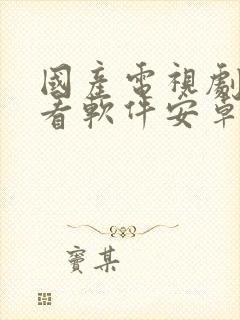 國產電視劇
看軟件安卓
竇某